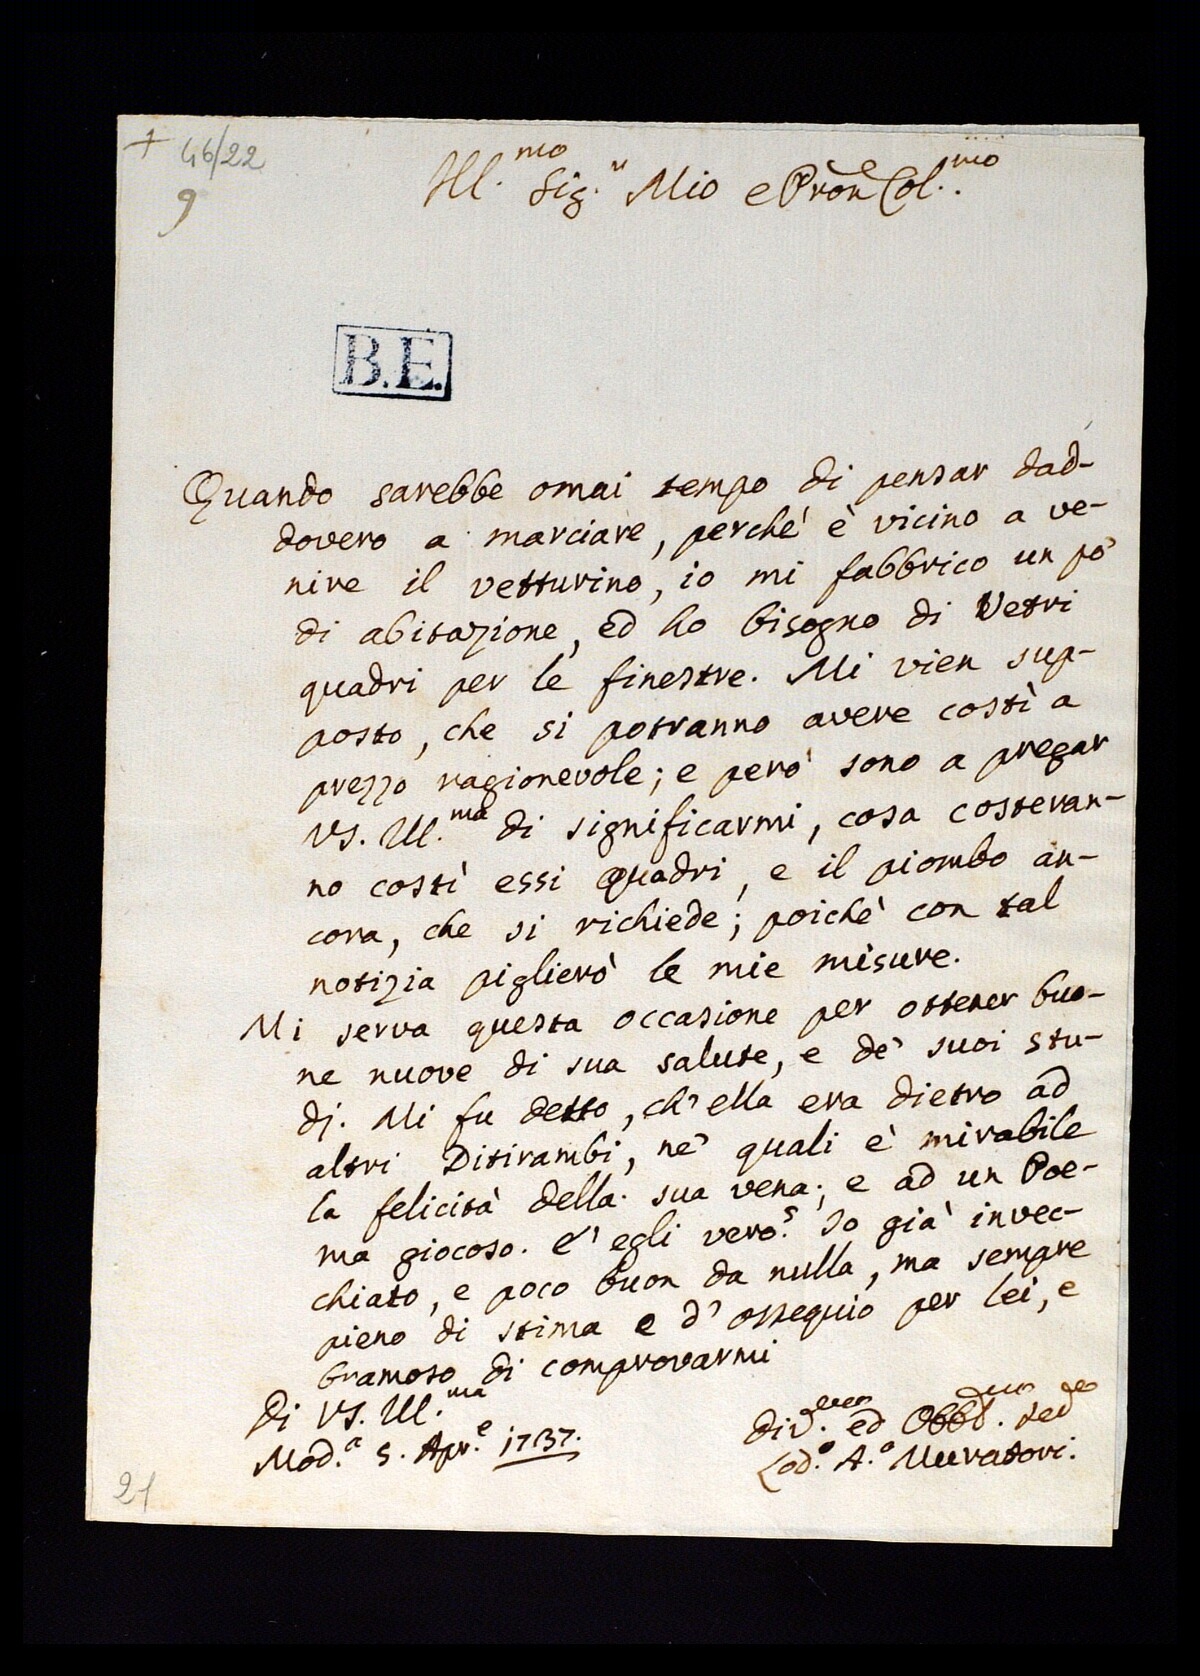 + 46/22
9
Ill.mo Sig.r Mio e Pron Col.mo
B.E.
Quando sarebbe omai tempo di pensar dad-
dovero a marciare, perchè è vicino a ve-
nire il vetturino, io mi fabbrico un po'
di abitazione, ed ho bisogno di Vetri
quadri per le finestre. Mi vien sup-
posto, che si potranno avere costì a
prezzo ragionevole; e però sono a pregar
VS. Ill.ma di significarmi, cosa costeran-
no costì essi Quadri, e il piombo an-
cora, che si richiede; poichè con tal
notizia piglierò le mie misure.
Mi serva questa occasione per ottener buo-
ne nuove di sua salute, e de' suoi stu-
dj. Mi fu detto, ch'ella era dietro ad
altri Ditirambi, ne' quali è mirabile
la felicità della sua vena; e ad un Poe-
ma giocoso. E' egli vero? Io già invec-
chiato, e poco buon da nulla, ma sempre
pieno di stima e d'ossequio per lei, e
bramoso di comprovarmi
Di VS. Ill.ma
Mod.a 5. Apr.e 1737.
div.mo ed Obbl.mo
Lod.o A.o Muratori.
21